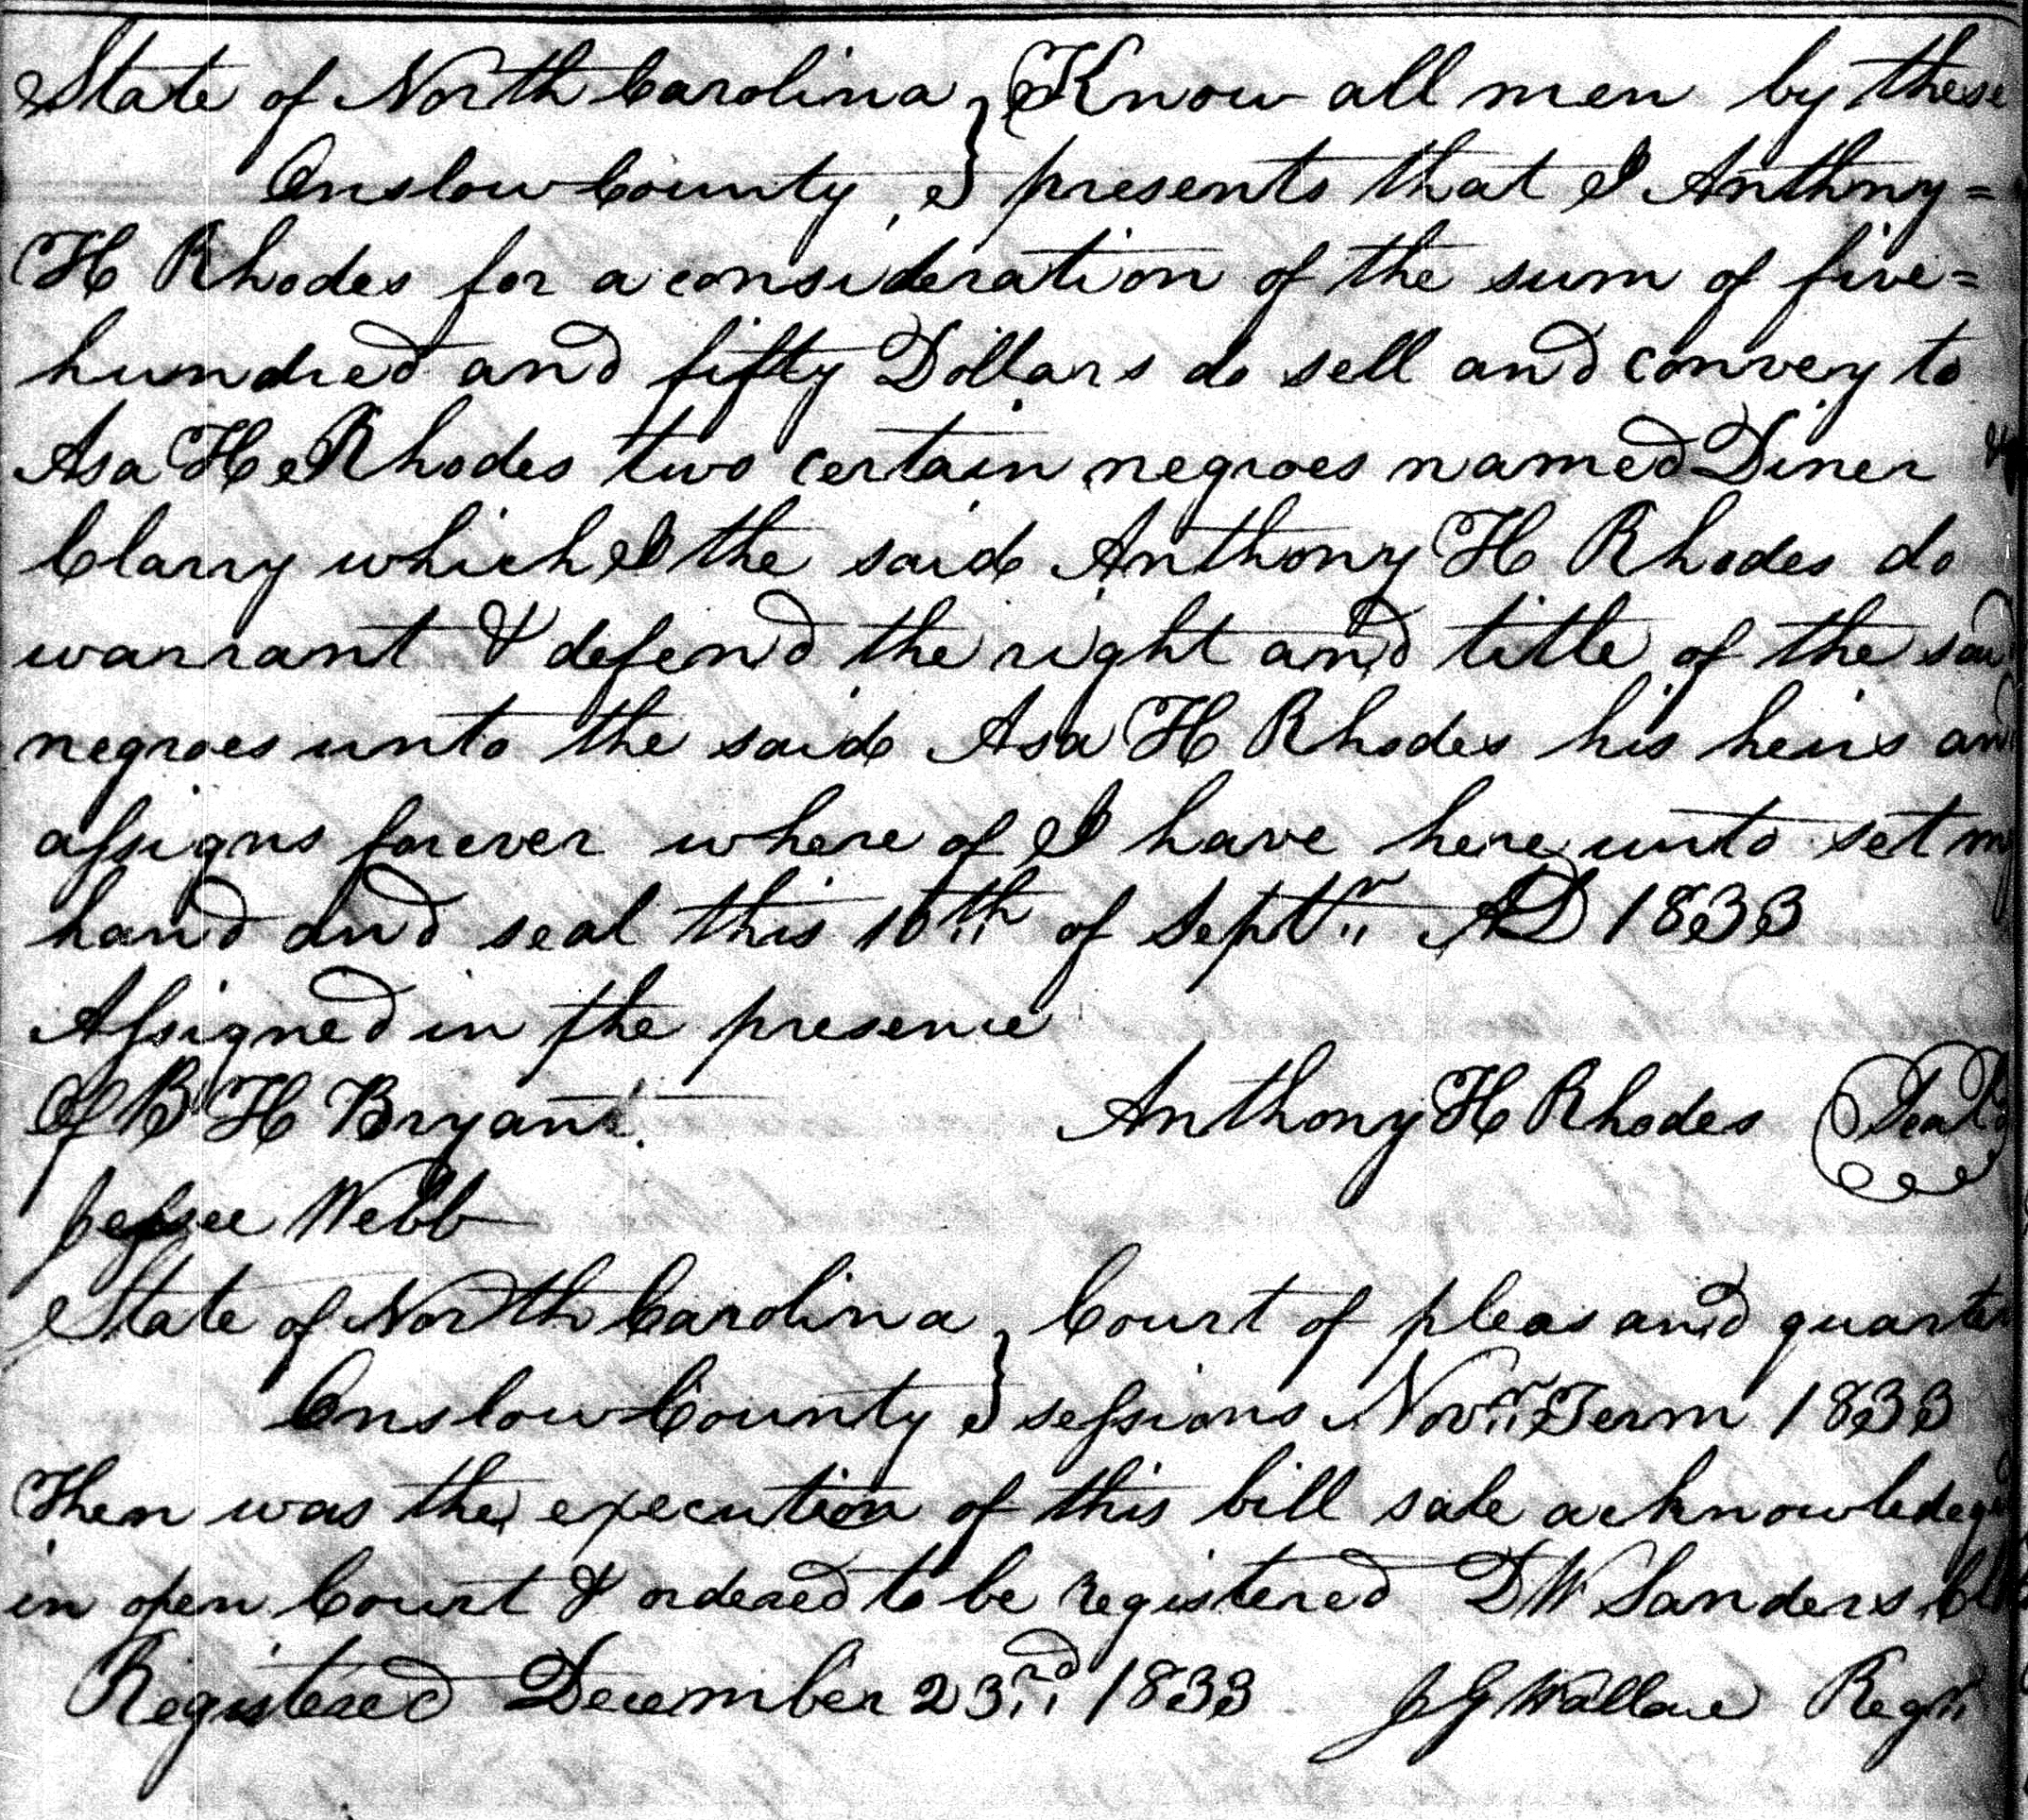 State of North Carolina } Know all men by these
Onslow County, } presents that I Anthony=
H Rhodes for a consideration of the sum of five=
hundred and fifty Dollars do sell and convey to
Asa H Rhodes two certain negroes named Diner &
Clarry which I the said Anthony H Rhodes do
warrant & defend the right and title of the said
negroes unto the said Asa H Rhodes his heirs and
assigns forever where of I have here unto set my
hand and seal this 10th of Septr AD 1833
Assigned in the presence
Of B H Bryant. Anthony H Rhodes Seal
Jessee Webb
State of North Carolina } Court of pleas and quarter
Onslow County } sessions Novr Term 1833
Then was the execution of this bill sale acknowledged
in open Court & ordered to be registered D W Sanders Clk
Registered December 23rd 1833 J G Wallace Regr